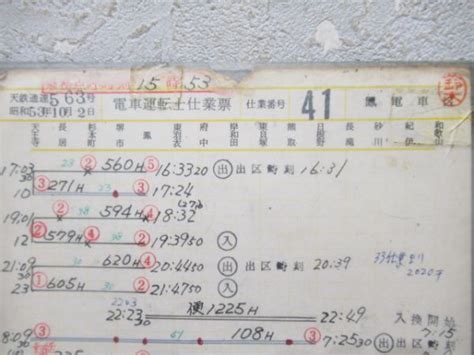 15時53
天鉄達運563号
昭和53年10月2日
電車運転士仕業票
仕業番号 41 鳳電車区
天王寺 長居 杉本町 堺市 鳳 東羽衣 府中 岸和田 東貝塚 熊取 日根野 長滝 砂川 紀伊 和歌山
17:03 23 ② 560H ⑤ 16:3320 出 出区時刻 16:31
10 ③ 271H ③ 17:24
19:01 38 594H ④ 18:32
12 ② 579H 38 ② 19:3950 入
21:09 30 620H ④ 20:4450 出 出区時刻 20:39
23 ① 605H ② 21:4750 入
2020
22:2330 便1225H 22:49 入換開始
7:15
8:09 ③ 51 108H ③ 7:2530 出